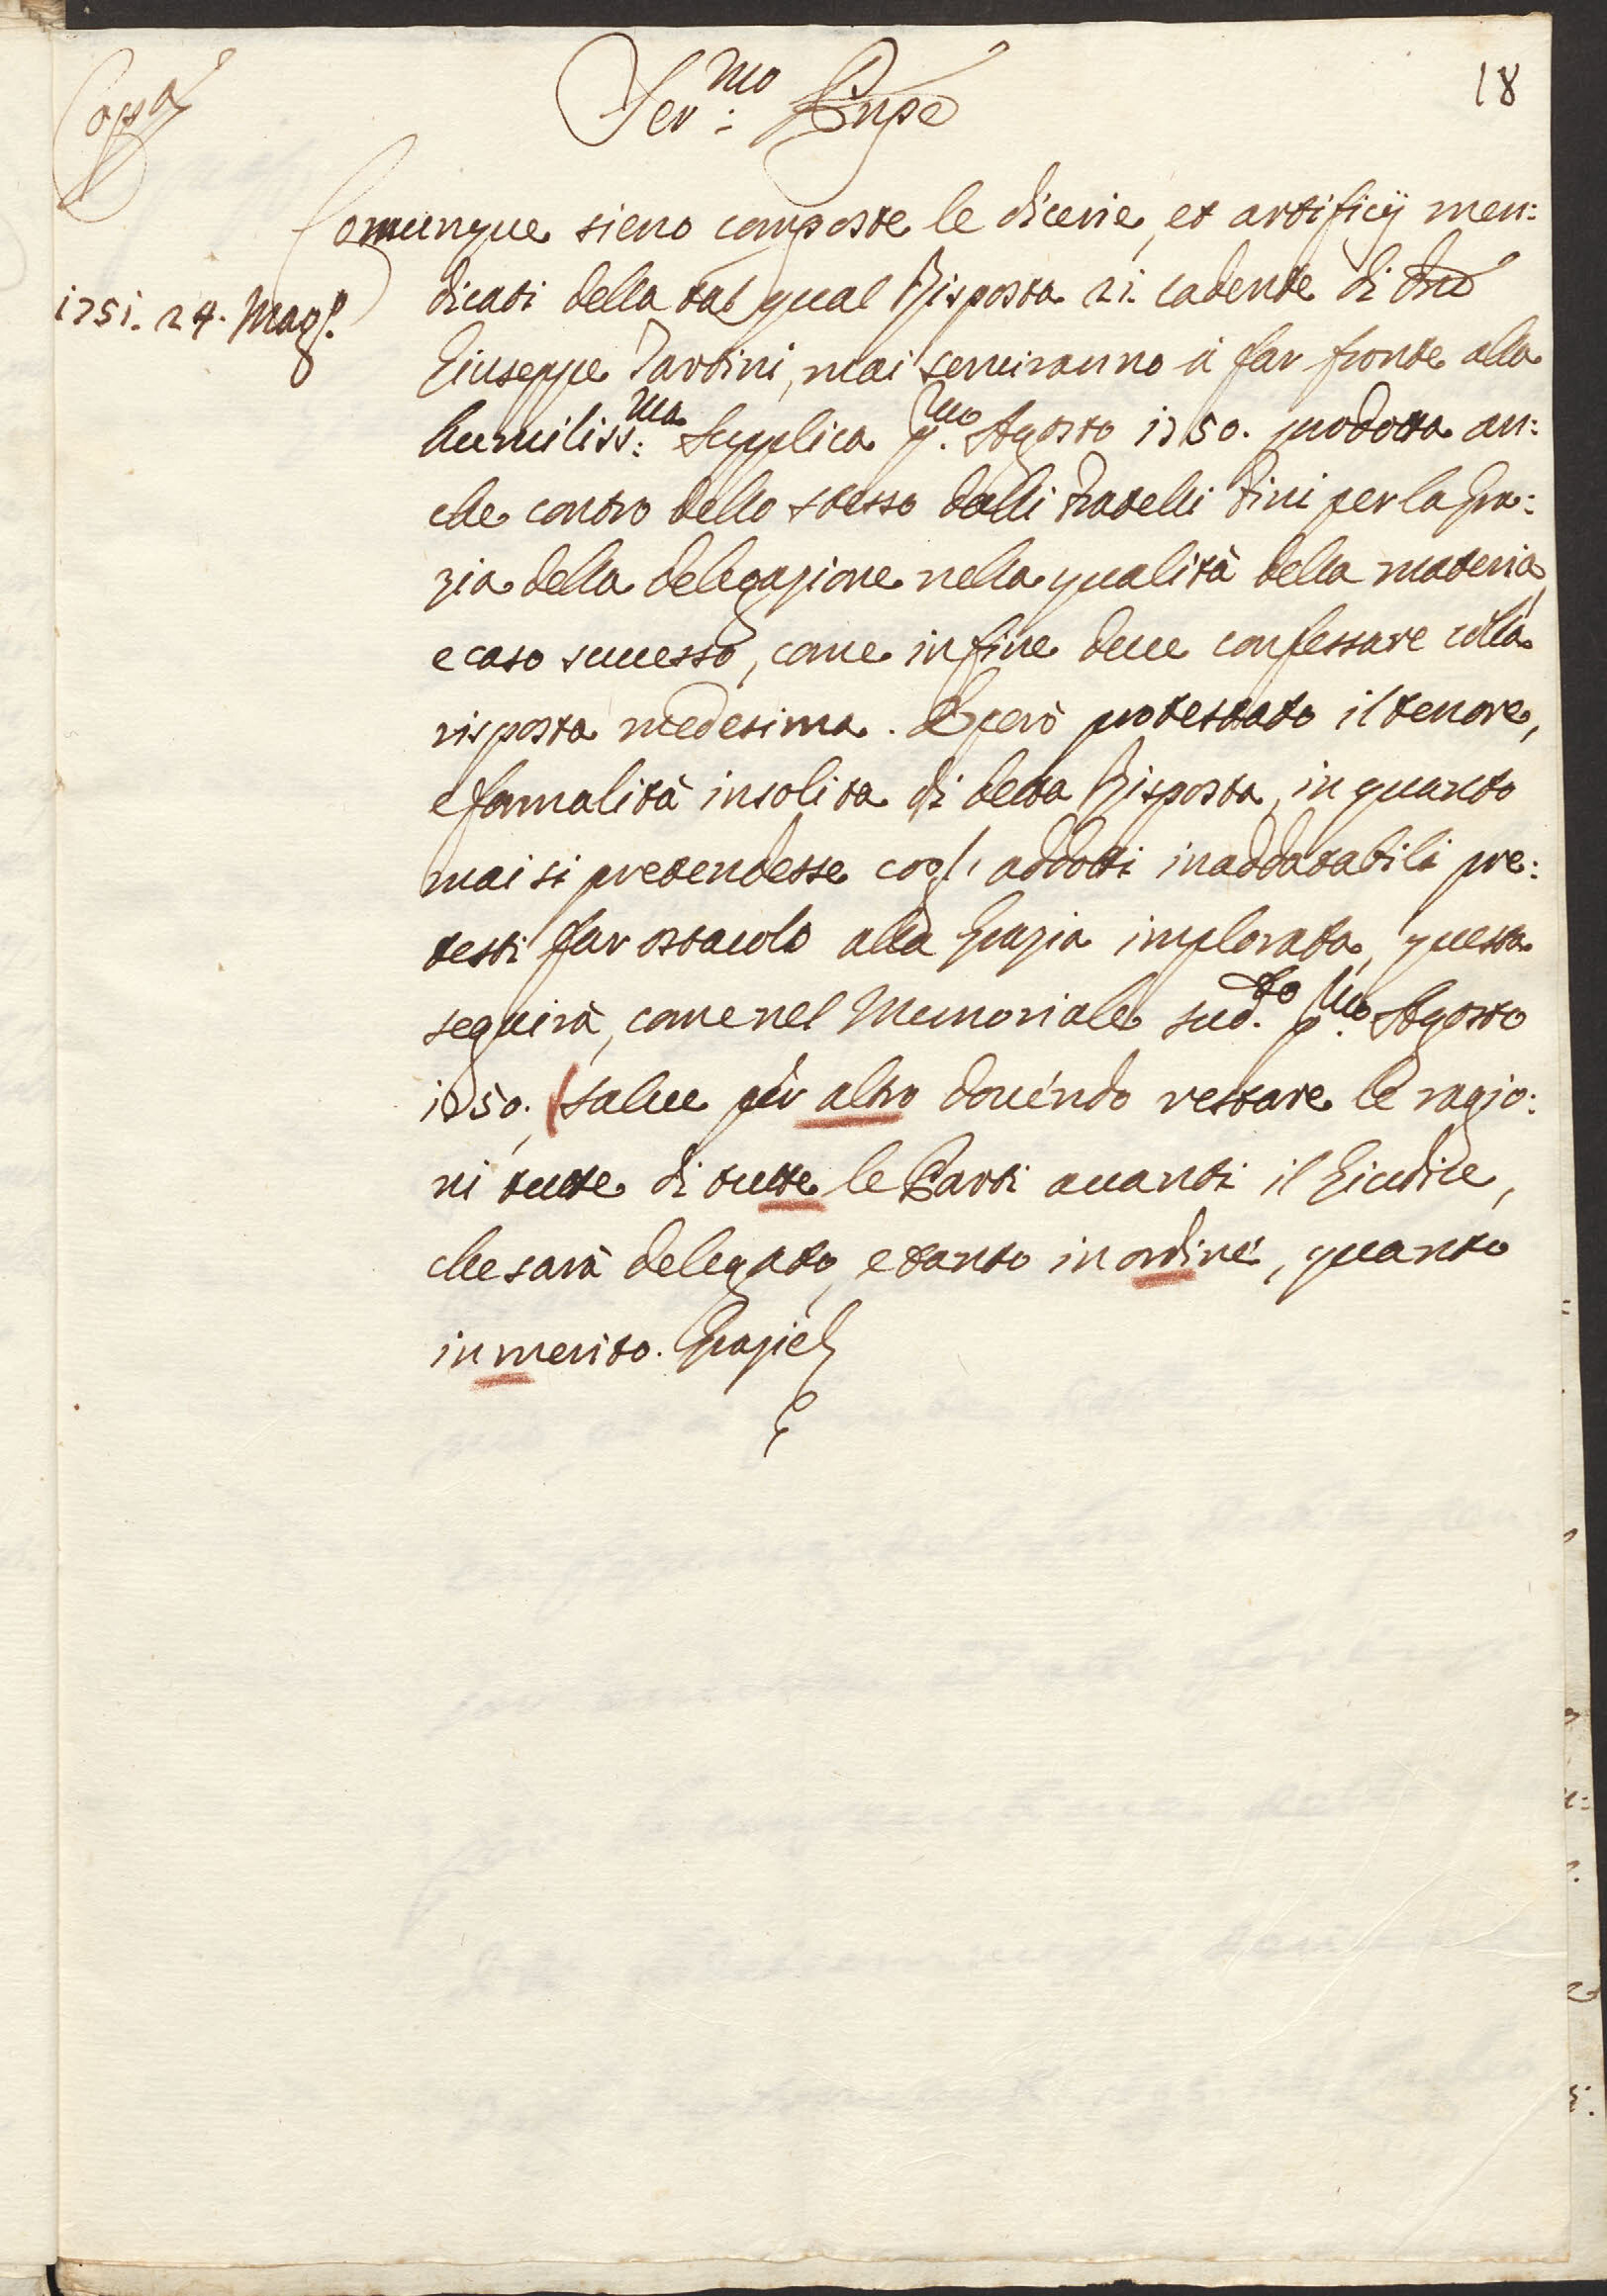 18
Copia
Ser.mo Pnpe
1751. 24. Magg.
Comunque sieno composte le dicerie, et artificij men:
dicati della tal qual Risposta 21. cadente di Dno
Giuseppe Tartini, mai serviranno à far fronte alla
humiliss:ma Supplica p.mo Agosto 1750. prodotta an:
che contro dello stesso dalli Fratelli Tini per la Gra:
zia della delegazione nella qualità della materia,
e caso successo, come infine deve confessare colla
risposta medesima. E però protestato il tenore,
e formalità insolita di detta Risposta, in quanto
mai si pretendesse cogl' addotti inaddatabili pre:
testi far ostacolo alla Grazia implorata, questa
seguirà, come nel Memoriale sud.to p.mo Agosto
1750., salve pèr altro dovéndo restare le ragio:
ni tutte di tutte le Parti avanti il Giudice,
che sarà delegato, e tanto in ordine, quanto
in merito. Grazie